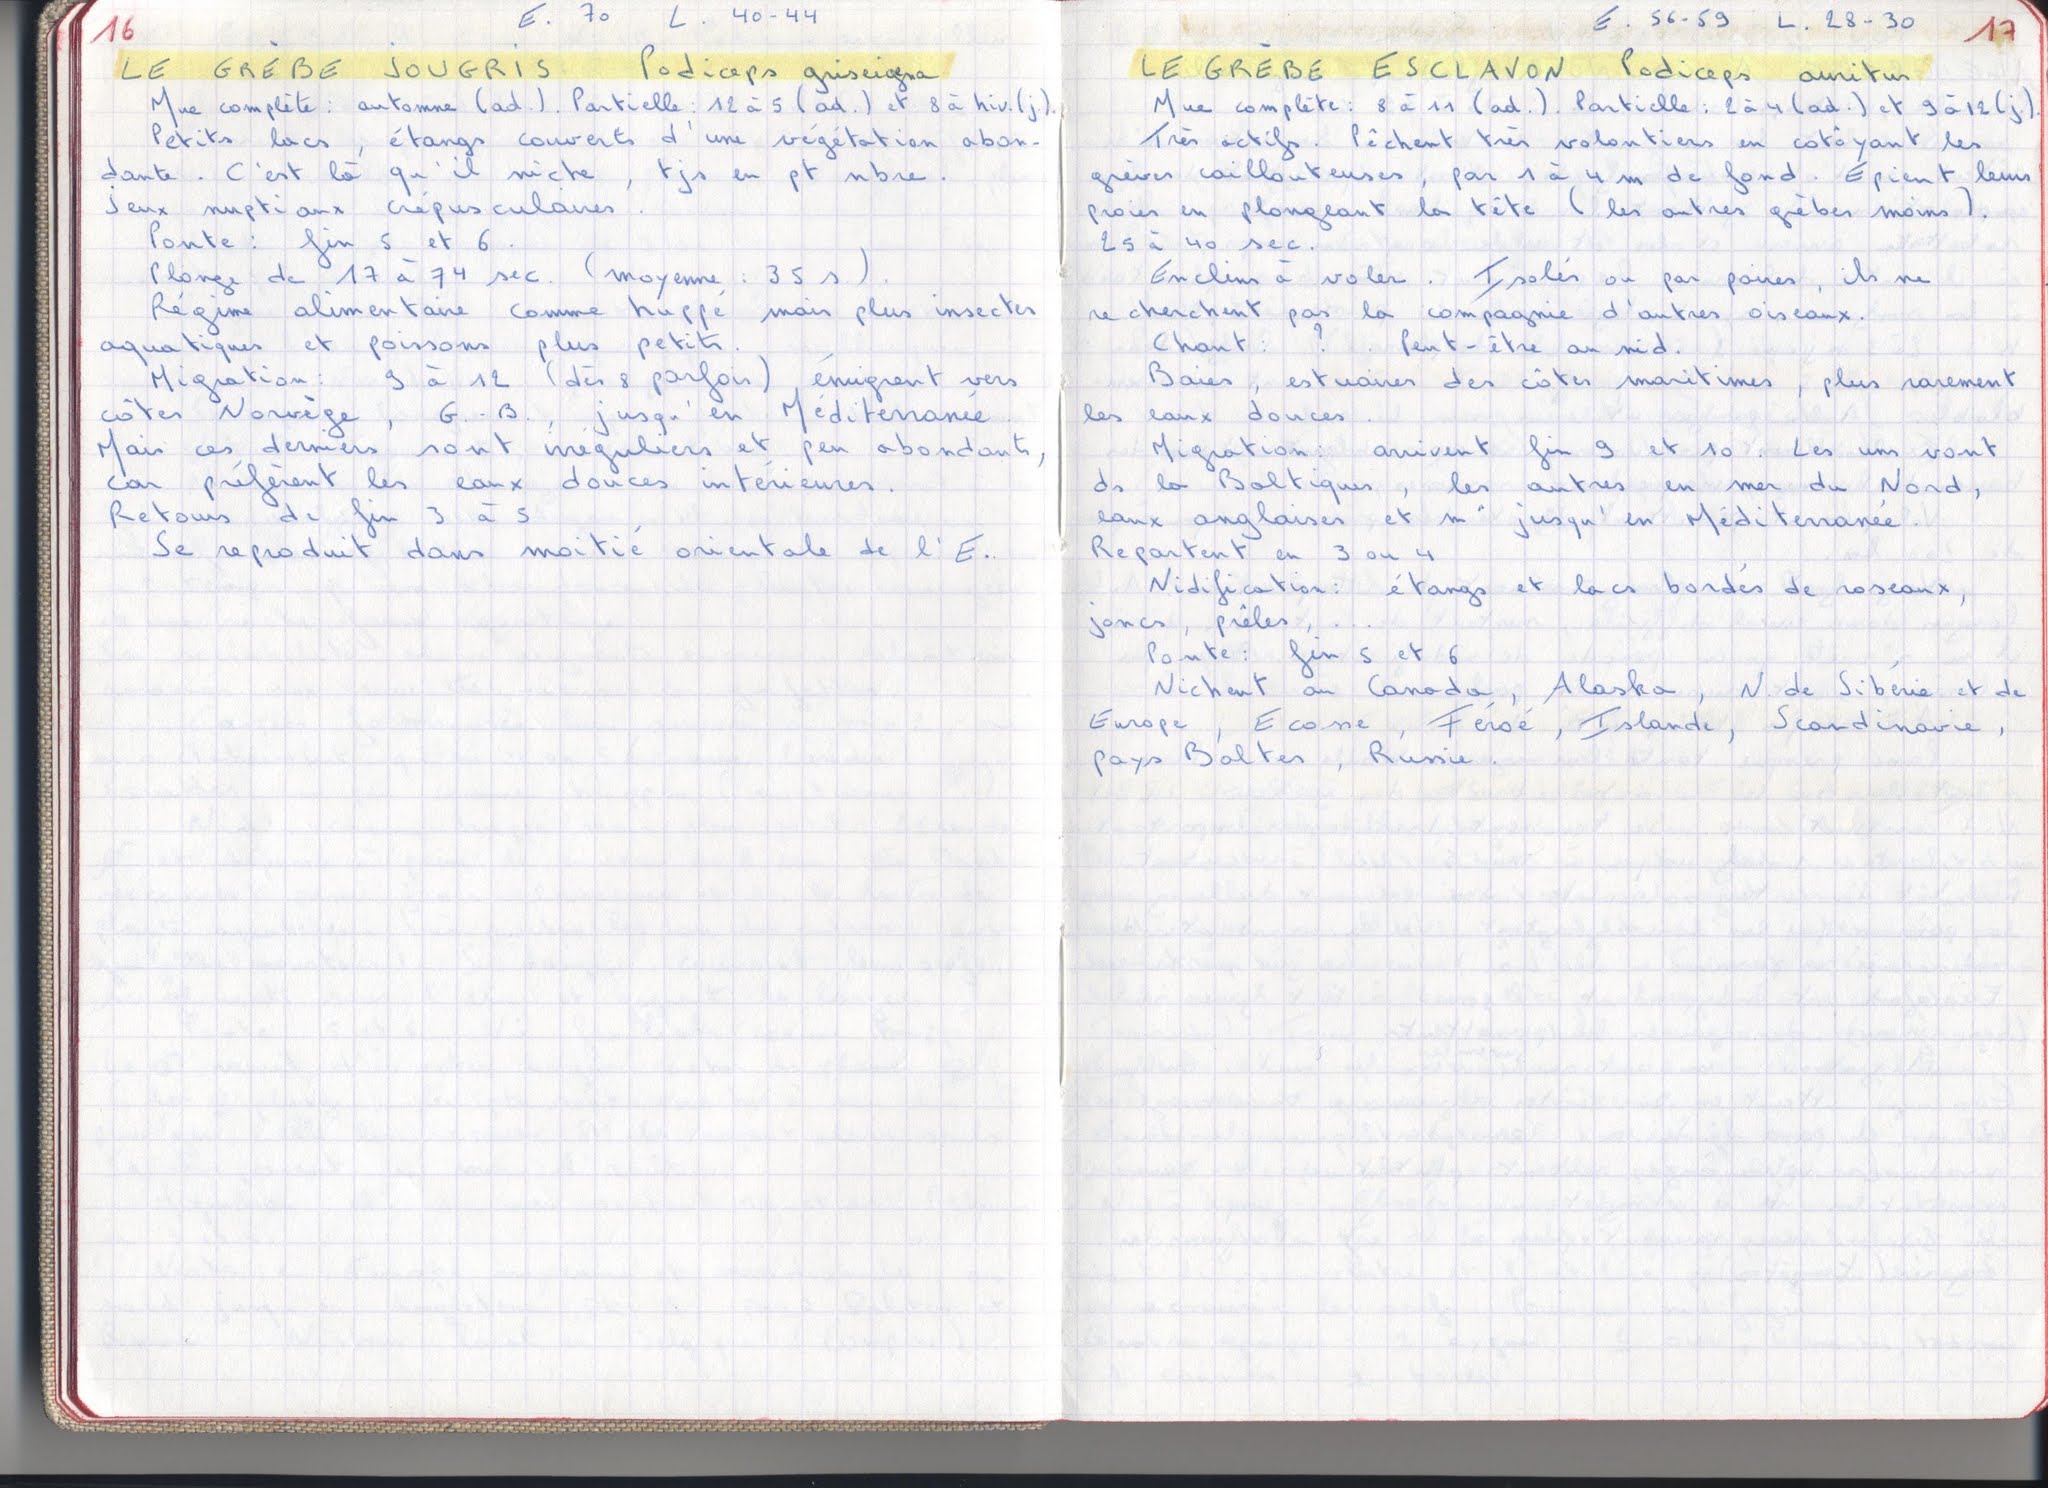 16
E. 70 L. 40-44
LE GRÈBE JOUGRIS Podiceps griseigena
Mue complète : automne (ad.). Partielle : 12 à 5 (ad.) et 8 à hiv. (j).
Petits lacs, étangs couverts d'une végétation abon-
dante. C'est là qu'il niche, tjs en pt nbre.
Jeux nuptiaux crépusculaires.
Ponte : fin 5 et 6.
Plonge de 17 à 74 sec. (moyenne : 35 s).
Régime alimentaire comme huppé mais plus insectes
aquatiques et poissons plus petits.
Migration : 9 à 12 (dès 8 parfois), émigrent vers
côtes Norvège, G.-B., jusqu'en Méditerranée.
Mais ces derniers sont irréguliers et peu abondants,
car préfèrent les eaux douces intérieures.
Retours de fin 3 à 5
Se reproduit dans moitié orientale de l'E.
E. 56-59 L. 28-30
17
LE GRÈBE ESCLAVON Podiceps auritus
Mue complète : 8 à 11 (ad.). Partielle : 2 à 4 (ad.) et 9 à 12 (j).
Très actifs. Pêchent très volontiers en cotôyant les
grèves caillouteuses, par 1 à 4 m de fond. Epient leurs
proies en plongeant la tête (les autres grèbes moins).
25 à 40 sec.
Enclins à voler. Isolés ou par paires, ils ne
recherchent pas la compagnie d'autres oiseaux.
Chant : ? . Peut-être au nid.
Baies, estuaires des côtes maritimes, plus rarement
les eaux douces.
Migration : arrivent fin 9 et 10. Les uns vont
ds la Baltique, les autres en mer du Nord,
eaux anglaises et m" jusqu'en Méditerranée.
Repartent en 3 ou 4
Nidification : étangs et lacs bordés de roseaux,
joncs, prêles, ...
Ponte : fin 5 et 6
Nichent au Canada, Alaska, N. de Sibérie et de
Europe, Ecosse, Féroé, Islande, Scandinavie,
pays Baltes, Russie.